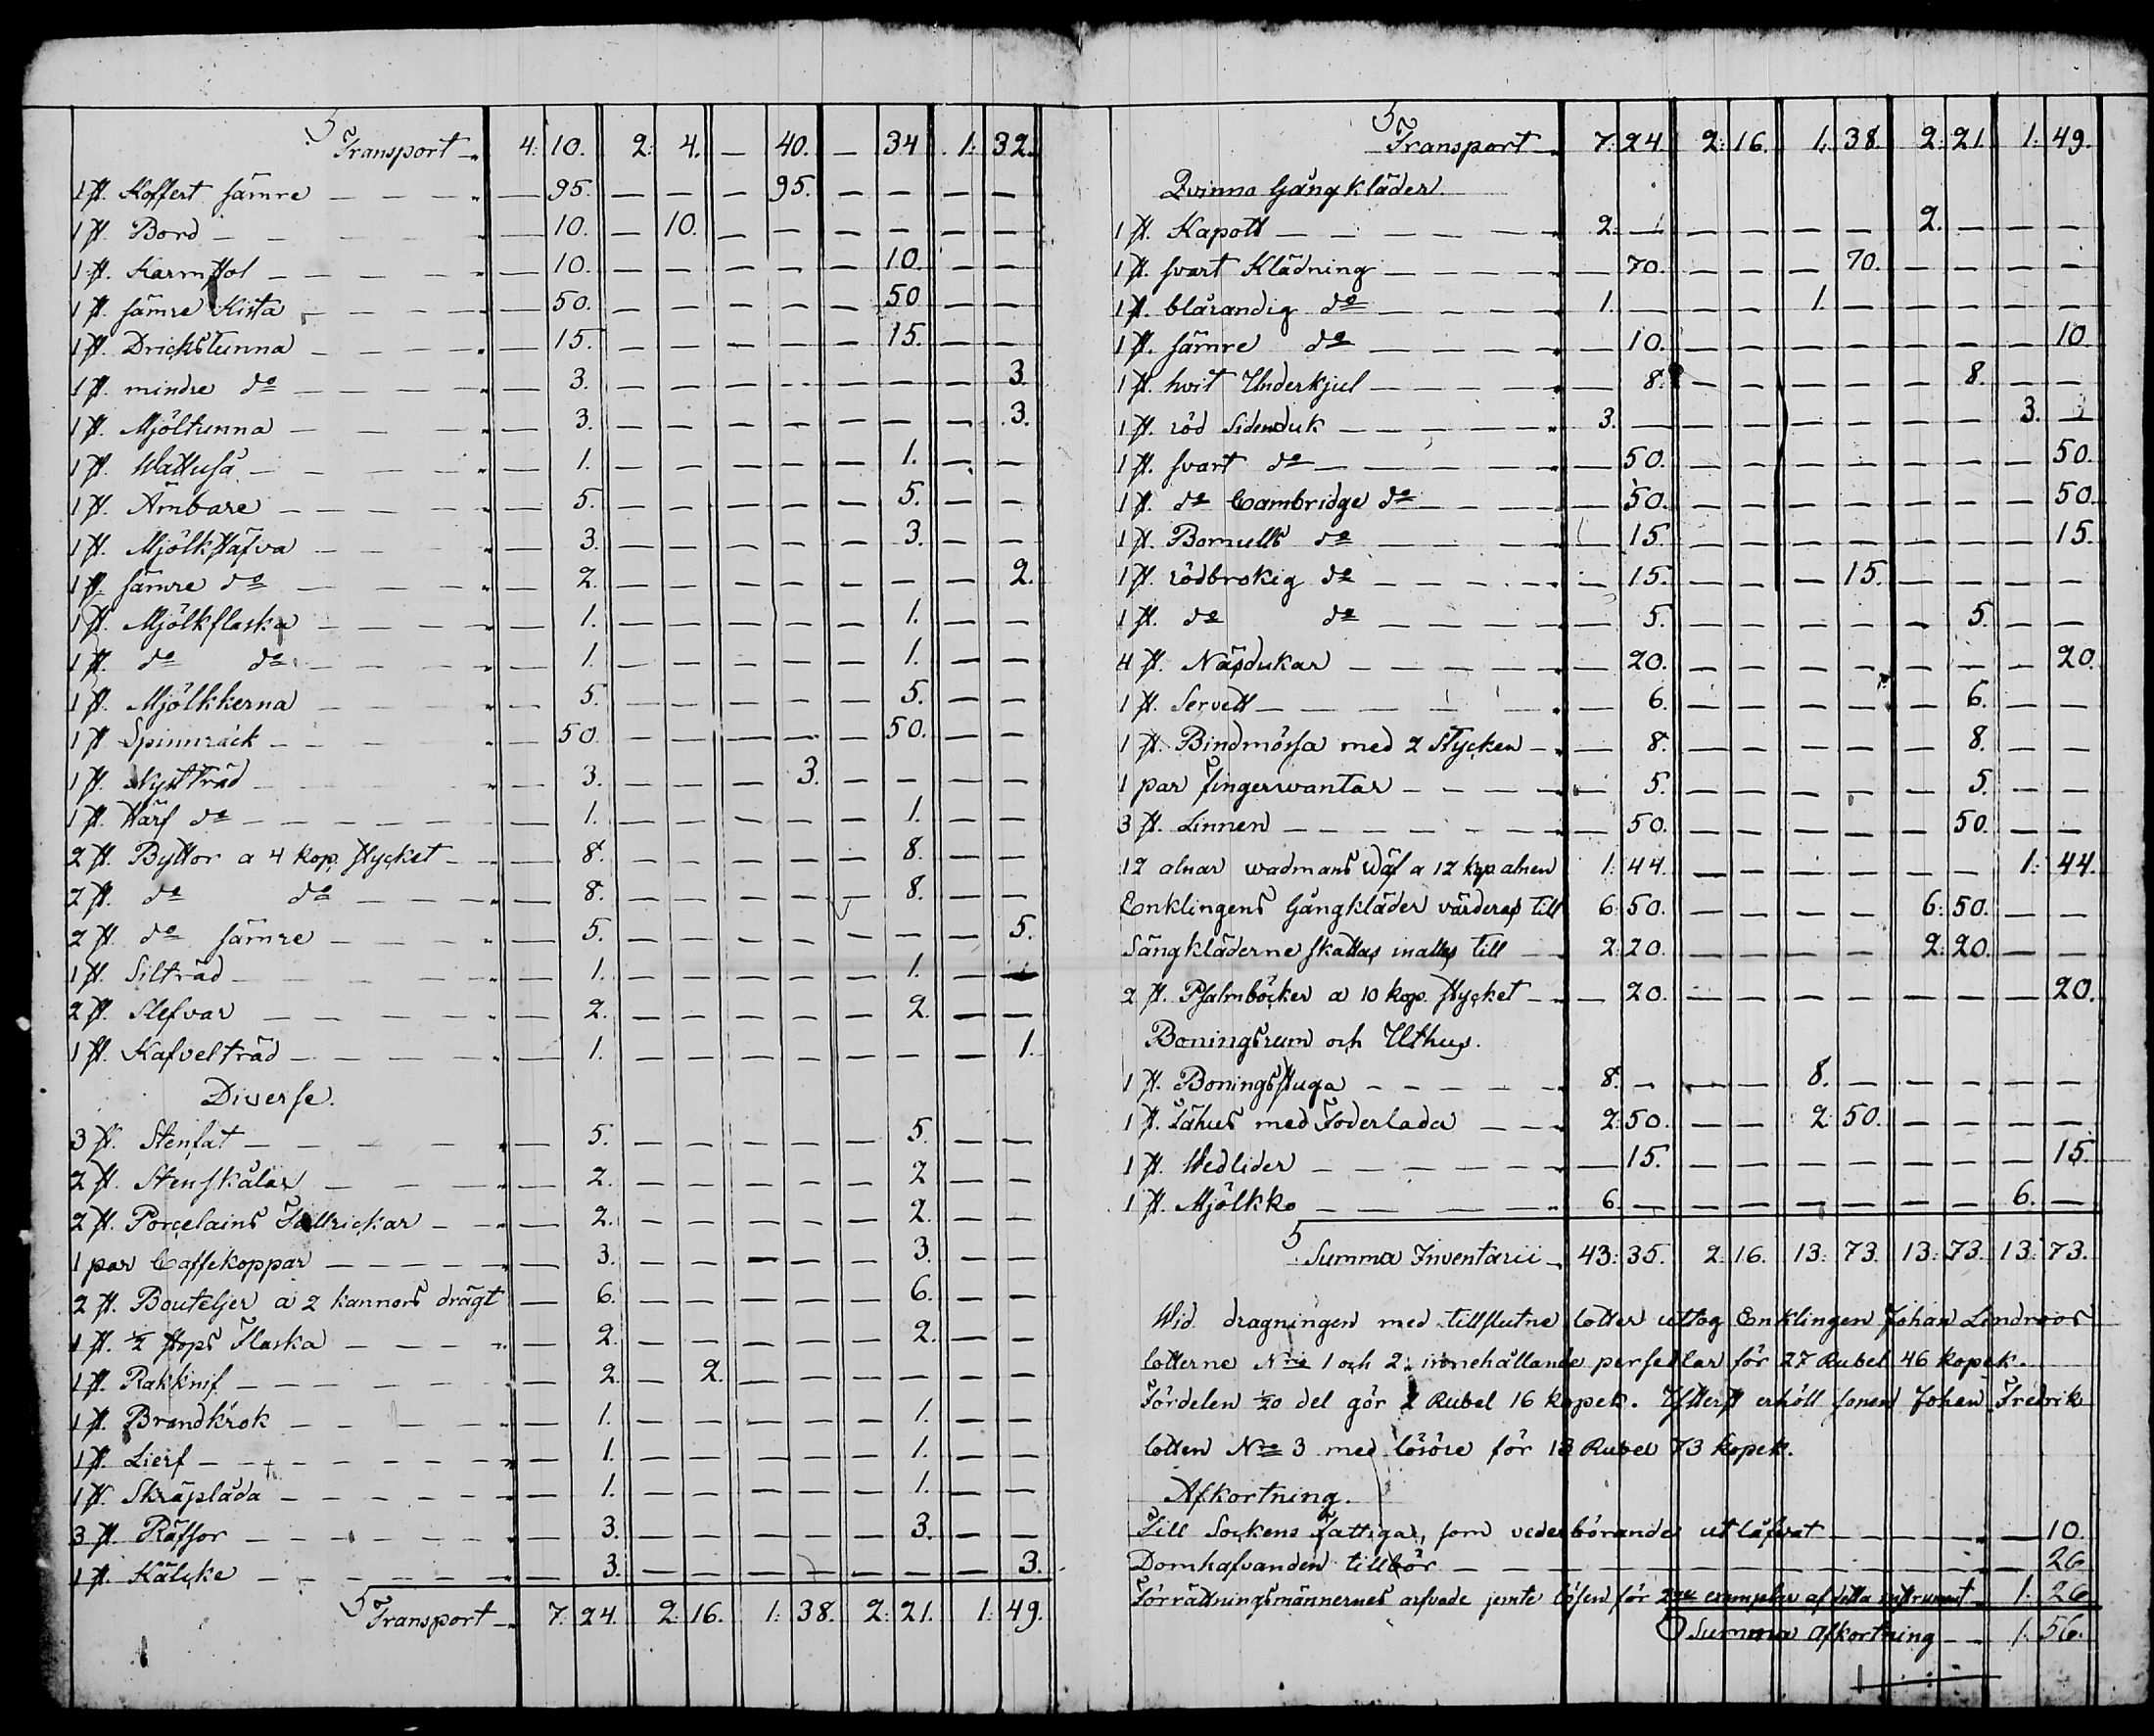 Transport 4: 10. 2: 4. — 40. — 34. 1: 32.
1 st. Koffert sämre — 95. — — — 95. — — — —
1 st. Bord — 10. — 10. — — — — — —
1 st. Karmstol — 10. — — — — — 10. — —
1 st. sämre Kista — 50. — — — — — 50 — —
1 st. Drickstunna — 15. — — — — — 15. — —
1 st. mindre do — 3. — — — — — — — 3.
1 st. Mjöltunna — 3. — — — — — — — 3.
1 st. Wattuså — 1. — — — — — 1. — —
1 st. Ämbare — 5. — — — — — 5. — —
1 st. Mjölkstäfva — 3. — — — — — 3. — —
1 st. sämre do — 2. — — — — — — — 2.
1 st. Mjölkflaska — 1. — — — — — 1. — —
1 st. do do — 1. — — — — — 1. — —
1 st. Mjölkkerna — 5. — — — — — 5. — —
1 st. Spinnråck — 50. — — — — — 50. — —
1 st. Nystträd — 3. — — — 3. — — — —
1 st. Härf do — 1. — — — — — 1. — —
2 st. Byttor a 4 kop. stycket — 8. — — — — — 8. — —
2 st. do do — 8. — — — — — 8. — —
2 st. do sämre — 5. — — — — — — — 5.
1 st. Silträd — 1. — — — — — 1. — —
2 st. Slefvar — 2. — — — — — 2. — —
1 st. Kafvelträd — 1. — — — — — — — 1.
Diverse.
3 st. Stenfat — 5. — — — — — 5. — —
2 st. Stenskålar — 2. — — — — — 2 — —
2 st. Porcelains Tallrickar — 2. — — — — — 2. — —
1 par Caffekoppar — 3. — — — — — 3. — —
2 st. Bouteljer a 2 kannors drägt — 6. — — — — — 6. — —
1 st. ½ stops Flaska — 2. — — — — — 2. — —
1 st. Rakknif — 2. — 2. — — — — — —
1 st. Brandkrok — 1. — — — — — 1. — —
1 st. Lierf — 1. — — — — — 1. — —
1 st. Skräplåda — 1. — — — — — 1. — —
3 st. Räfsor — 3. — — — — — 3. — —
1 st. Kälcke — 3. — — — — — — — 3.
Transport 7: 24. 2: 16. 1: 38. 2: 21. 1: 49.
Transport 7: 24. 2: 16. 1: 38. 2: 21. 1: 49.
Qvinno Gångkläder.
1 st. Kapott 2. — — — — — 2. — — —
1 st. svart Klädning — 70. — — — 70. — — — —
1 st. blårandig do 1. — — — 1. — — — — —
1 st. sämre do — 10. — — — — — — — 10.
1 st. hvit Underkjul — 8. — — — — — 8. — —
1 st. röd Sidenduk 3. — — — — — — — 3. —
1 st. svart do — 50. — — — — — — — 50.
1 st. do Cambridge do — 50. — — — — — — — 50.
1 st. Bomulls do — 15. — — — — — — — 15.
1 st. rödbrokig do — 15. — — — 15. — — — —
1 st. do do — 5. — — — — — 5. — —
4 st. Näsdukar — 20. — — — — — — — 20.
1 st. Servett — 6. — — — — — 6. — —
1 st. Bindmössa med 2 Stycken — 8. — — — — — 8. — —
1 par fingerwantar — 5. — — — — — 5. — —
3 st. Linnen — 50. — — — — — 50. — —
12 alnar wadmans Wäf a 12 kop. alnen 1: 44. — — — — — — 1: 44.
Enklingens Gångkläder värderas till 6: 50. — — — — 6: 50. — —
Sängkläderne skattas inalles till 2: 20. — — — — 2: 20. — —
2 st. Psalmböcker a 10 kop. stycket — 20. — — — — — — — 20.
Boningsrum och Uthus.
1 st. Boningsstuga 8. — — — 8. — — — — —
1 st. Fähus med Foderlada 2: 50. — — 2: 50. — — — —
1 st. Wedlider — 15. — — — — — — — 15.
1 st. Mjölkko 6. — — — — — — — 6. —
Summa Inventarii 43: 35. 2: 16. 13: 73. 13: 73. 13: 73.
Wid dragningen med tillslutne lotter uttog Enklingen Johan Lindroos
lotterne Nro 1 och 2 innehållande persedlar för 27 Rubel 46 kopek.
Fördelen 1/20 del gör 2 Rubel 16 kopek. Ytterst erhöll sonen Johan Fredrik
lotten Nro 3 med lösöre för 13 Rubel 73 kopek.
Afkortning.
Till Sockens fattigar, som vederbörander utläfvat — 10.
Domhafvanden tillbör — 26
Förrättningsmännernes arfvode jemte lösen för 2ne exemplar af detta instrument 1. 26
Summa Afkortning 1. 56.